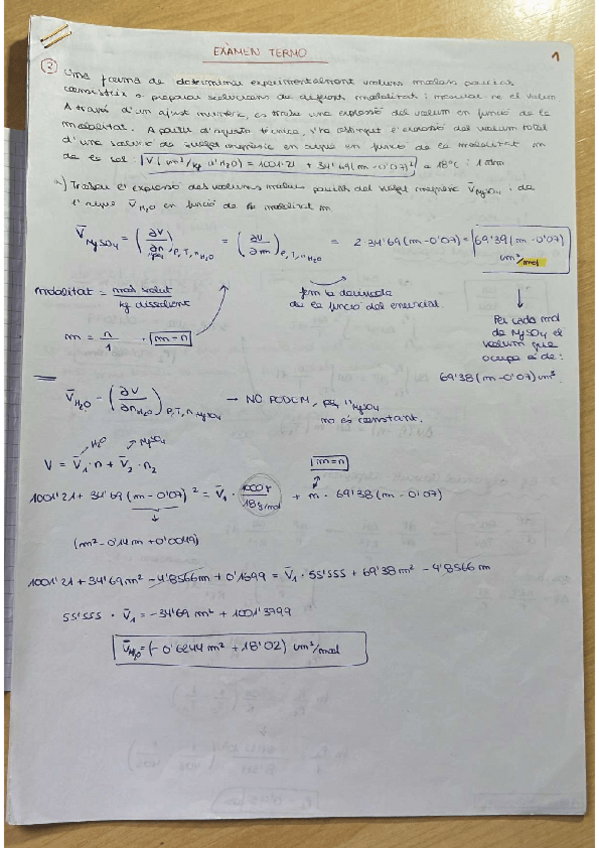 EXÀMEN TERMO
1
② Una forma de determinar experimentalment volums molars parcials
consisteix a preparar solucions de diferent molalitat i mesurar-ne el volum
A través d'un ajust numèric, es troba una expressió del volum en funció de la
molalitat. A partir d'aquesta tècnica, s'ha obtingut l'expressió del volum total
d'una solució de sulfat magnèsic en aigua en funció de la molalitat m
de la sal: V(cm³/kg d'H₂O) = 1001'21 + 34'69(m-0'07)² a 18°C i 1 atm
a) Trobeu l'expressió dels volums molars parcials del sulfat magnèsic V̄MgSO₄ i de
l'aigua V̄H₂O en funció de la molalitat m
V̄MgSO₄ = (∂V/∂n)P,T,nH₂O = (∂V/∂m)P,T,nH₂O = 2·34'69(m-0'07) = 69'39(m-0'07) cm³/mol
molalitat = mols solut / kg dissolvent
fem la derivada
de la funció de l'enunciat.
m = n/1 · m=n
Per cada mol
de MgSO₄ el
volum que
ocupa és de:
69'38(m-0'07)cm³.
V̄H₂O = (∂V/∂nH₂O)P,T,nMgSO₄ → NO PODEM, perquè nMgSO₄
no és constant.
H₂O MgSO₄
V = V̄₁·n + V̄₂·n₂
m=n
1001'21 + 34'69(m-0'07)² = V̄₁ · 1000g/18g/mol + m · 69'38(m-0'07)
(m²-0'14m+0'0049)
1001'21 + 34'69m² - 4'8566m + 0'1699 = V̄₁·55'555 + 69'38m² - 4'8566m
55'555 · V̄₁ = -34'69m² + 1001'3799
V̄H₂O = (-0'6244m² + 18'02) cm³/mol